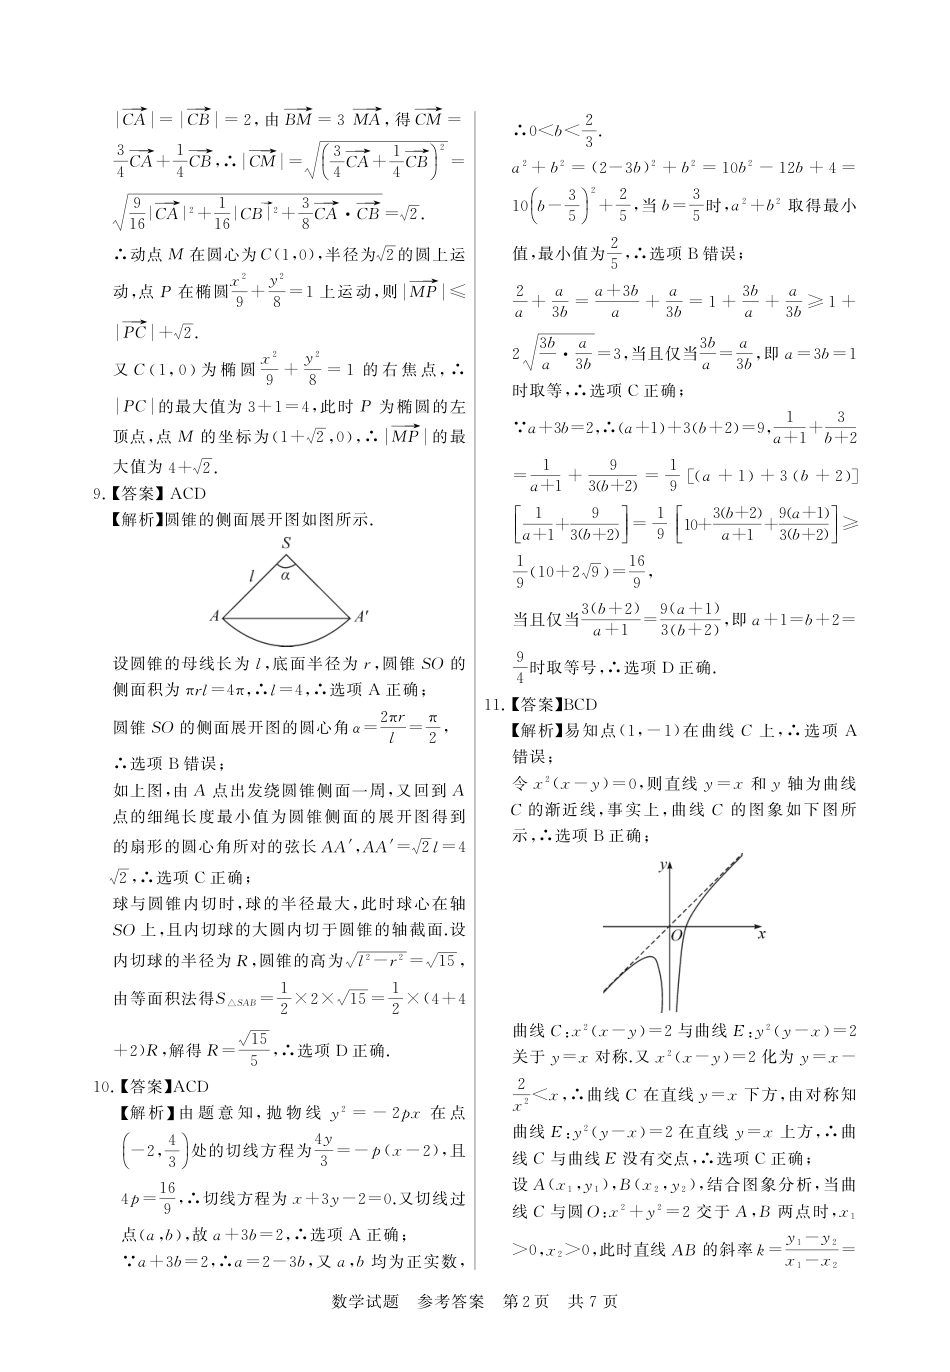 |CA|=|CB|=2,由BM=3 MA,得CM=
3/4 CA+1/4 CB,∴|CM|=√(3/4 CA+1/4 CB)²=
√(9/16|CA|²+1/16|CB|²+3/8 CA·CB)=√2.
∴动点M在圆心为C(1,0),半径为√2的圆上运
动,点P在椭圆x²/9+y²/8=1上运动,则|MP|≤
|PC|+√2.
又C(1,0)为椭圆x²/9+y²/8=1的右焦点,∴
|PC|的最大值为3+1=4,此时P为椭圆的左
顶点,点M的坐标为(1+√2,0),∴|MP|的最
大值为4+√2.
9.【答案】ACD
【解析】圆锥的侧面展开图如图所示.
S
l α
A A′
设圆锥的母线长为l,底面半径为r,圆锥SO的
侧面积为πrl=4π,∴l=4,∴选项A正确;
圆锥SO的侧面展开图的圆心角α=2πr/l=π/2,
∴选项B错误;
如上图,由A点出发绕圆锥侧面一周,又回到A
点的细绳长度最小值为圆锥侧面的展开图得到
的扇形的圆心角所对的弦长AA′,AA′=√2l=4
√2,∴选项C正确;
球与圆锥内切时,球的半径最大,此时球心在轴
SO上,且内切球的大圆内切于圆锥的轴截面.设
内切球的半径为R,圆锥的高为√(l²-r²)=√15,
由等面积法得S△SAB=1/2×2×√15=1/2×(4+4
+2)R,解得R=√15/5,∴选项D正确.
10.【答案】ACD
【解析】由题意知,抛物线y²=-2px在点
(-2,4/3)处的切线方程为4y/3=-p(x-2),且
4p=16/9,∴切线方程为x+3y-2=0.又切线过
点(a,b),故a+3b=2,∴选项A正确;
∵a+3b=2,∴a=2-3b,又a,b均为正实数,
∴0<b<2/3.
a²+b²=(2-3b)²+b²=10b²-12b+4=
10(b-3/5)²+2/5,当b=3/5时,a²+b²取得最小
值,最小值为2/5,∴选项B错误;
2/a+a/3b=(a+3b)/a+a/3b=1+3b/a+a/3b≥1+
2√(3b/a·a/3b)=3,当且仅当3b/a=a/3b,即a=3b=1
时取等,∴选项C正确;
∵a+3b=2,∴(a+1)+3(b+2)=9,1/(a+1)+3/(b+2)
=1/(a+1)+9/3(b+2)=1/9[(a+1)+3(b+2)]
[1/(a+1)+9/3(b+2)]=1/9[10+3(b+2)/(a+1)+9(a+1)/3(b+2)]≥
1/9(10+2√9)=16/9,
当且仅当3(b+2)/(a+1)=9(a+1)/3(b+2),即a+1=b+2=
9/4时取等号,∴选项D正确.
11.【答案】BCD
【解析】易知点(1,-1)在曲线C上,∴选项A
错误;
令x²(x-y)=0,则直线y=x和y轴为曲线
C的渐近线,事实上,曲线C的图象如下图所
示,∴选项B正确;
y
O x
曲线C:x²(x-y)=2与曲线E:y²(y-x)=2
关于y=x对称.又x²(x-y)=2化为y=x-
2/x²<x,∴曲线C在直线y=x下方,由对称知
曲线E:y²(y-x)=2在直线y=x上方,∴曲
线C与曲线E没有交点,∴选项C正确;
设A(x₁,y₁),B(x₂,y₂),结合图象分析,当曲
线C与圆O:x²+y²=2交于A,B两点时,x₁
>0,x₂>0,此时直线AB的斜率k=(y₁-y₂)/(x₁-x₂)=
数学试题 参考答案 第2页 共7页